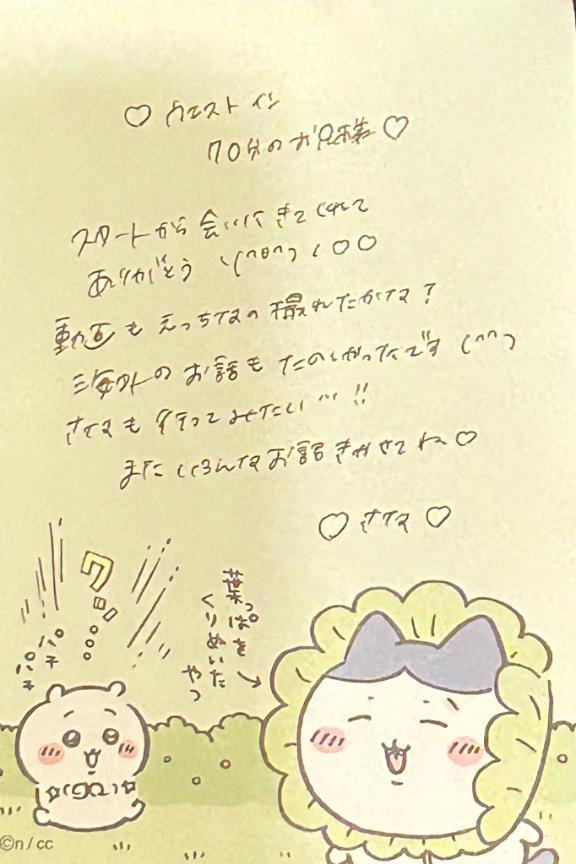 ♡ ウエストイン
70分のお兄様♡
スタートから会いに行きてくれて
ありがとう ヽ(^o^)ノ ○○
動画もえっちなの撮れたかな?
海外のお話もたのしかったです (^^)
さなも行ってみたい…!!
またいろんなお話きかせてね♡
♡ さな ♡
クッ
パチ
パチ
葉っぱを
くりぬいた
やつ
©n/cc